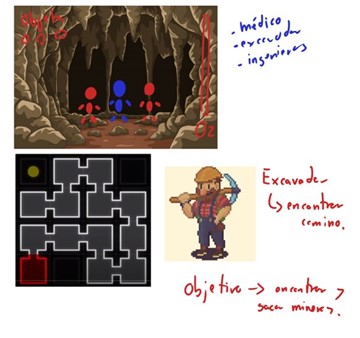 O2
- médico
- excavador
- ingenieros
Excavador
↳ encontrar
camino.
Objetivo → encontrar y
sacar mineros.